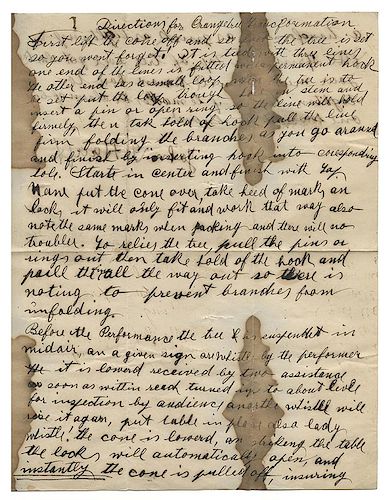 1
Directions for Orangetree Transformation
First lift the cone off and set the tree is set
so you wont forget. It is tied with three lines
one end of the lines is fitted with permanent hook
the other end has a small loop, when the tree is to
be set put the loop through stem and
insert a pin or open ring so the line will hold
firmly, then take hold of hook pull the line
firm folding the branches as you go around
and finish by inserting hook into coresponding
hole. Starts in center and finish with Top
put the cone over, take heed of marks on
locks it will only fit and work that way also
note the same marks when packing and there will no
trouble. To relies the tree, pull the pins or
rings out then take hold of the hook and
pull all the way out so there is
noting to prevent branches from
unfolding.
Before the Performance the tree is suspended in
midair, on a given sign or whistle by the performer
it is lowerd received by two assistance
as soon as within reach turned up to about level
for injection by audience, another whistle will
rise it again, put table in place also a lady
whistl. the cone is lowerd, on the table
the locks will automatically open, and
instantly the cone is pulled off, insuring